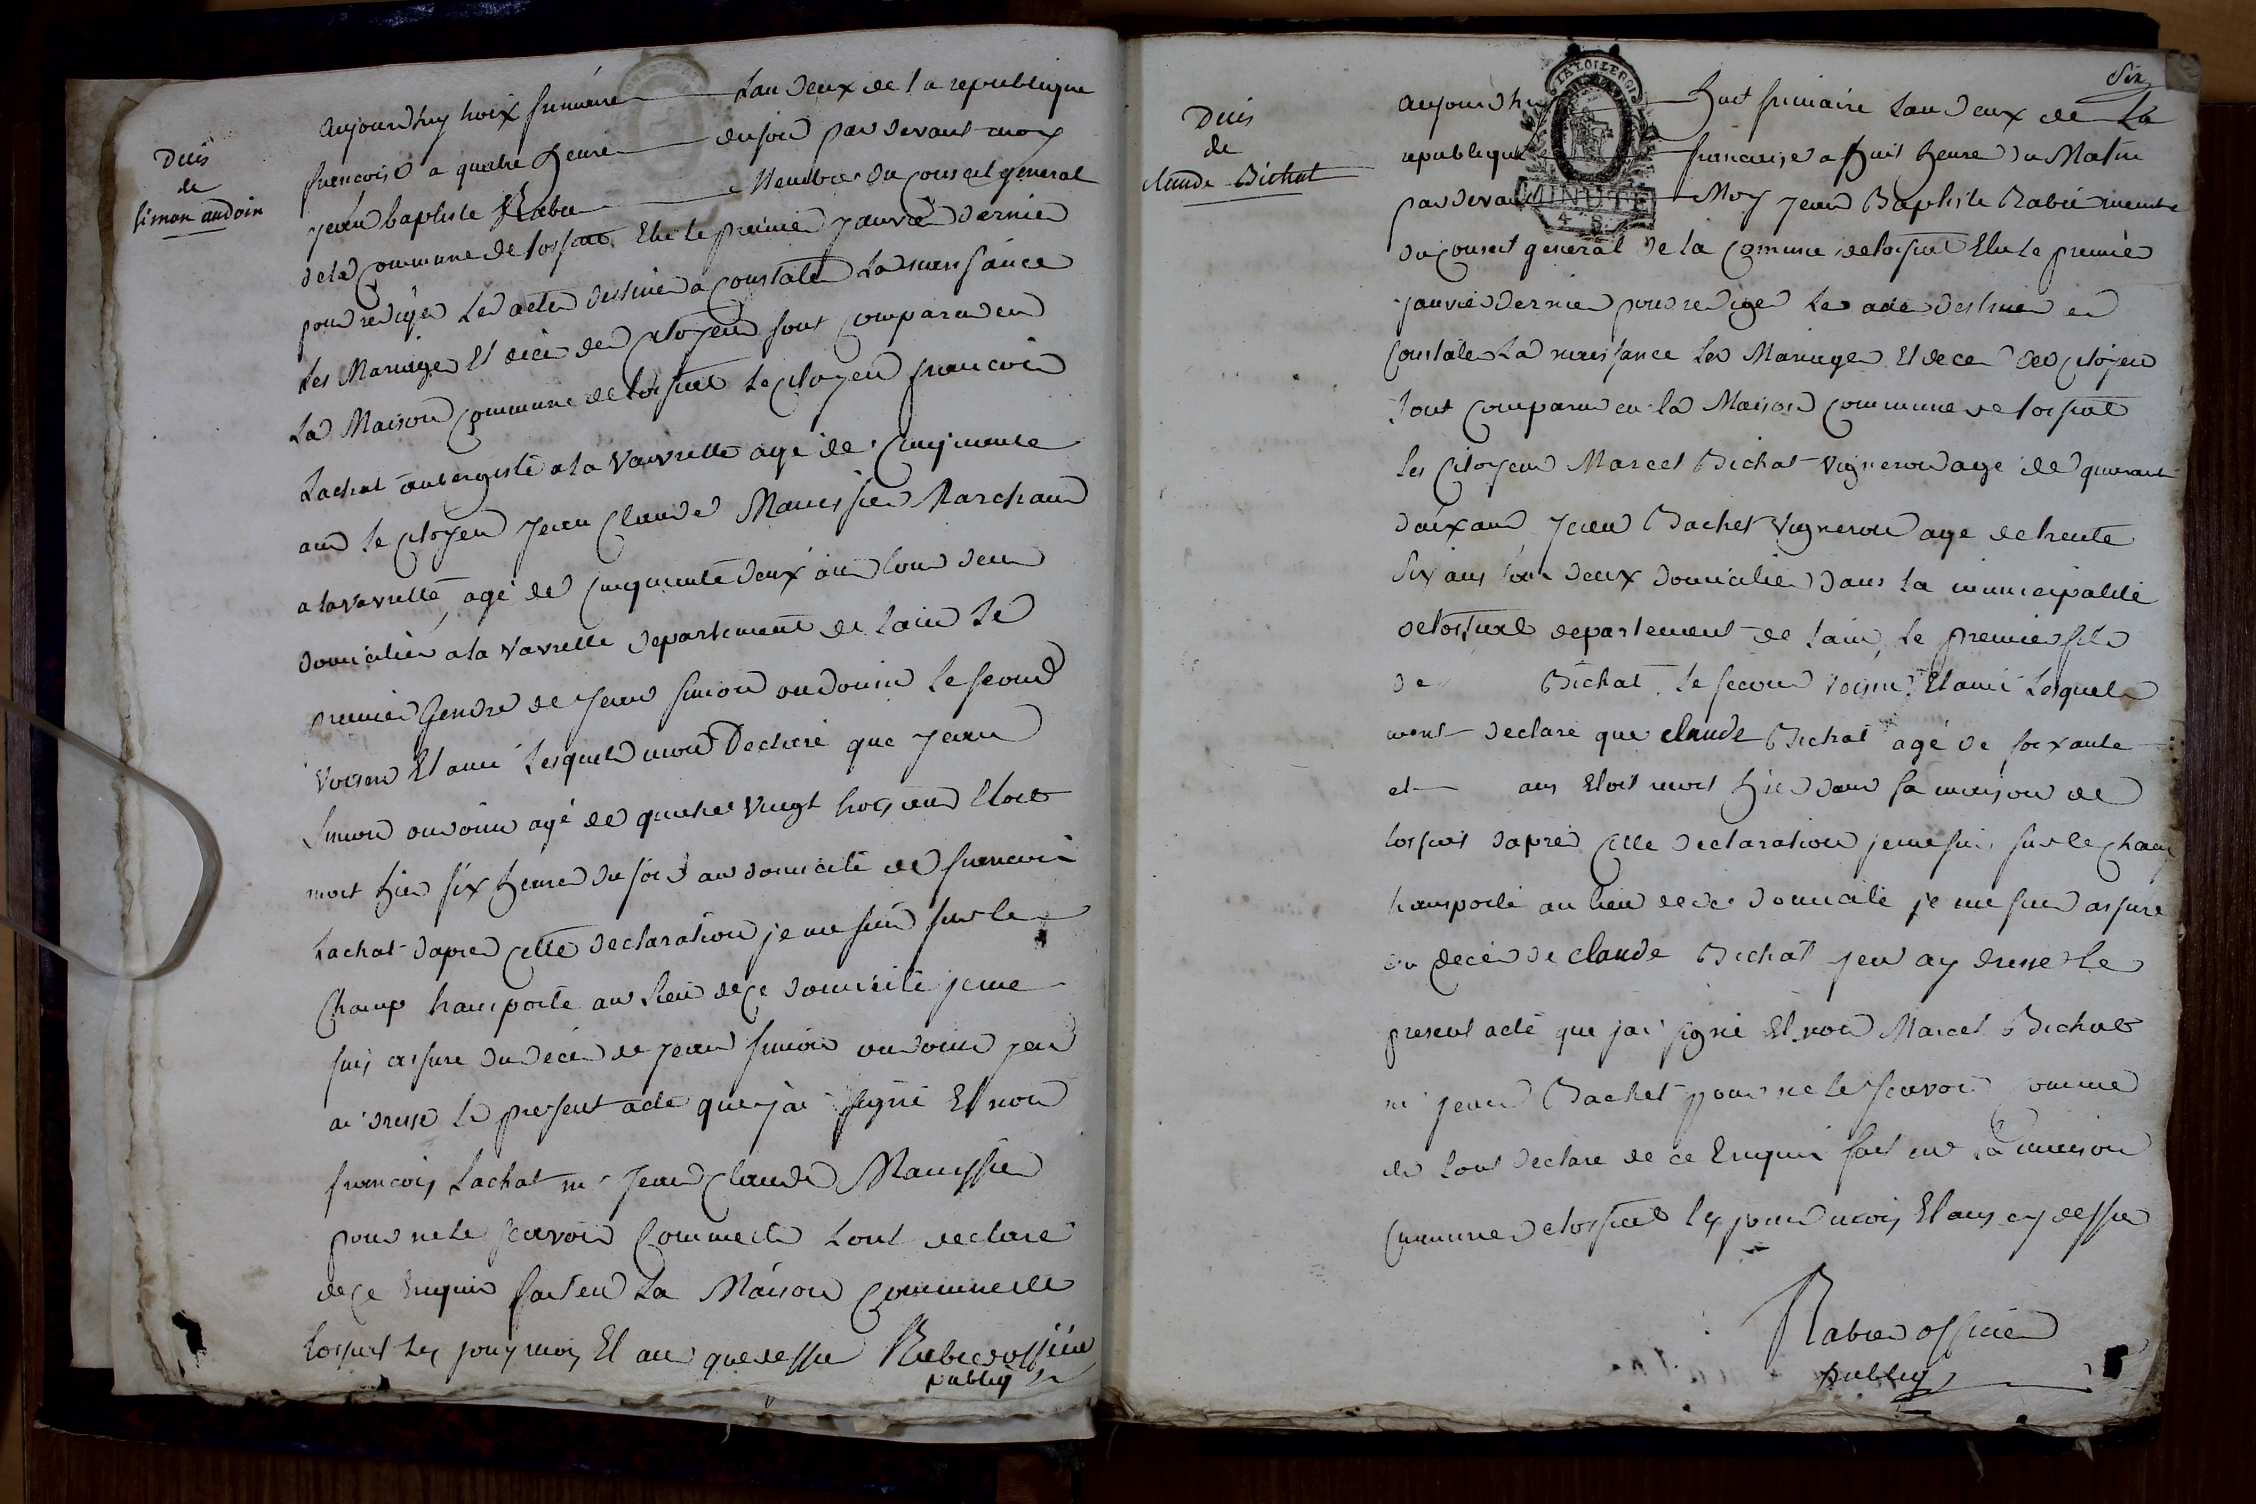 Decis
de
simon audoin
aujourdhuy troix frimaire lan deux de la republique
francoise a quatre heure du soir par devant moy
jean baptiste Rabu Membre du conseil general
de la commune de tossiat Elu le premier janvier dernier
pour rediger Les actes destiné a constater La naissance
Les Mariages Et décès des citoyens sont comparu en
La Maison commune de tossiat Le citoyen francois
Lachat aubergiste a la Vavrette agé de Cinquante
ans le citoyen jean Claude Manissier Marchand
a la vavrette, agé de Cinquante deux ans tous deux
domicilié a la vavrette departement de Lain Le
premier Gendre de jean simon oudouin Le second
Voisin Et ami Lesquels mont Declaré que jean
simon oudoin agé de quatre vingt trois ans Etoit
mort hier six heures du soir au domicile de francois
Lachat dapres cette declaration je me suis sur le
Champ transporté au Lieu de ce domicile je me
suis assure du décès de jean simon oudoin jen
ai dressé le present acte que jai signé Et non
francois Lachat ni jean Claude Manissier
pour ne le scavoir comme ils Lont declaré
de ce Enquis fait en La Maison commune de
tossiat Les jour mois Et an que dessus Rabu officier
public
Six
Decis
de
claude Bichat
LA LOI LE ROI
MINUTE
4. S.
aujourdhuy huit frimaire Lan deux de La
republique francoise a huit heure du Matin
par devant Moy jean Baptiste Rabu membre
du conseil general de la commune de tossiat Elu le premier
janvier dernier pour rediger Les actes destiné a
constater La naissance Les Mariages Et deces des citoyens
sont comparu en la Maison commune de tossiat
Les Citoyens Marcel Bichat vigneron agé de quarante
deux ans jean Bachet vigneron age de trente
six ans tous deux domicilié dans la municipalité
de tossiat departement de Lain, Le premier fils
de Bichat Le second voisin Et ami Lesquels
mont declaré que claude Bichat agé de soixante
et ans Etoit mort hier dans sa maison de
tossiat dapres cette declaration je me suis sur le champ
transporté au lieu de ce domicile je me suis assuré
du décès de claude Bichat jen ay dressé Le
present acte que jai signé Et non Marcel Bichat
ni jean Bachet pour ne le scavoir comme
ils Lont declaré de ce Enquis fait en la maison
commune de tossiat Les jour mois Et an cy dessus
Rabu officier
public